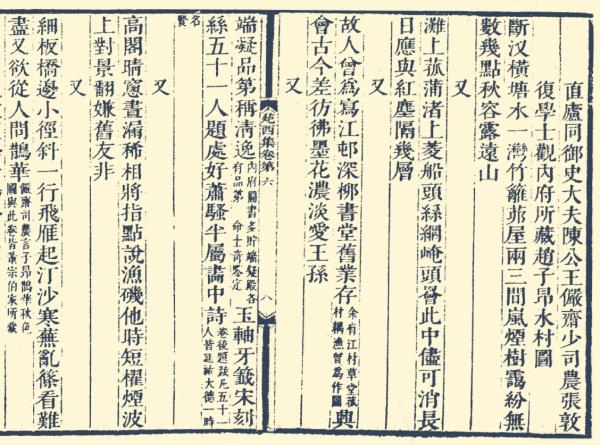 直廬同御史大夫陳公王儼齋少司農張敦
復學士觀內府所藏趙子昂水村圖
斷汊橫塘水一灣竹籬茆屋兩三間嵐煙樹靄紛無
數幾點秋容露遠山
又
灘上菰蒲渚上菱船頭絲網崦頭罾此中儘可消長
日應與紅塵隔幾層
又
故人曾爲寫江邨深柳書堂舊業存余有江村草堂菰村耦漁曾爲作圖與
會古今差彷彿墨花濃淡愛王孫
又
苑西集卷第六 八
端凝品第稱清逸內府圖書多貯端凝殿各有品第 命士奇鑒定玉軸牙籤宋刻
絲五十一人題處好蕭騷半屬畫中詩卷後題跋凡五十一人皆延祐大德一時
名賢
又
高閣晴窻晝漏稀相將指點說漁磯他時短櫂煙波
上對景翻嫌舊友非
又
細板橋邊小徑斜一行飛雁起汀沙寒蕪亂篠看難
盡又欲從人問鵲華儼齋司農言子昂鵲華秋色圖與此卷皆董宗伯家所藏